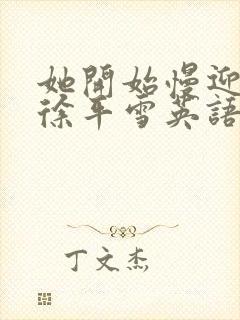 她開始慢迎
徐平雪英語
丁文杰